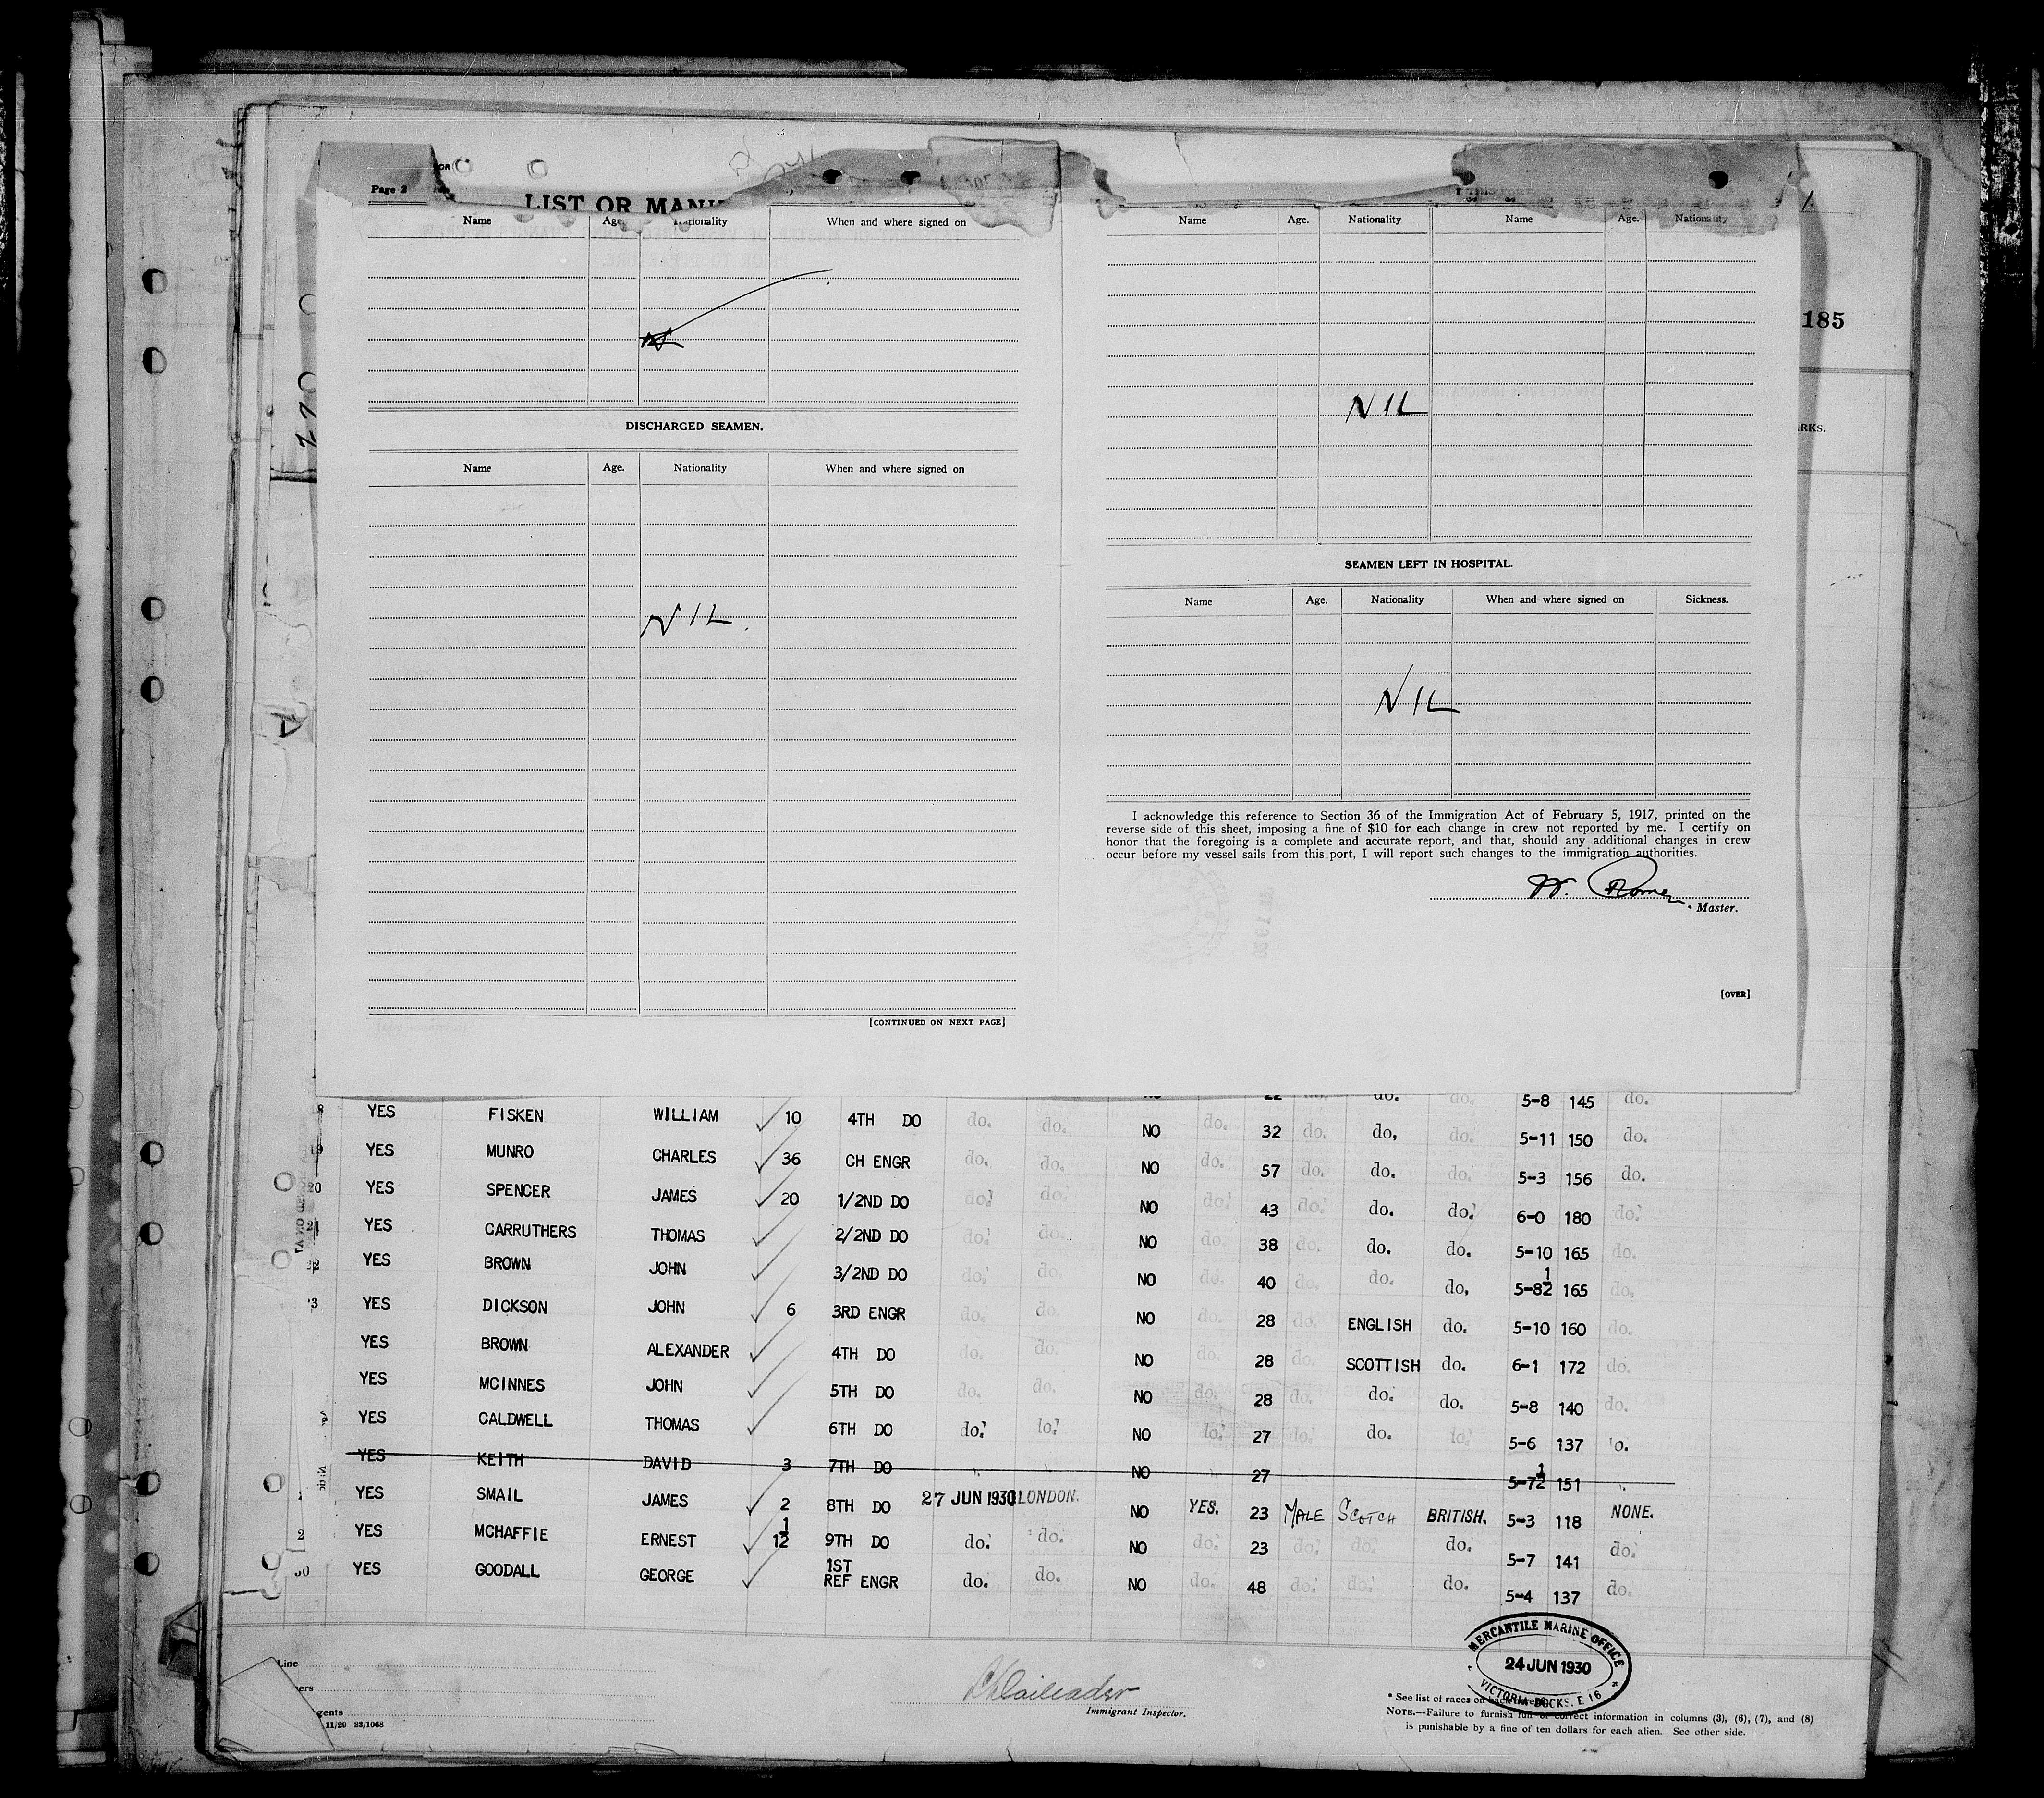 Page 2
LIST OR
Name Age. Nationality When and where signed on
DISCHARGED SEAMEN.
Name Age. Nationality When and where signed on
NIL.
[CONTINUED ON NEXT PAGE]
Name Age. Nationality Name Age. Nationality
NIL
SEAMEN LEFT IN HOSPITAL.
Name Age. Nationality When and where signed on Sickness.
NIL
I acknowledge this reference to Section 36 of the Immigration Act of February 5, 1917, printed on the
reverse side of this sheet, imposing a fine of $10 for each change in crew not reported by me. I certify on
honor that the foregoing is a complete and accurate report, and that, should any additional changes in crew
occur before my vessel sails from this port, I will report such changes to the immigration authorities.
W.
Master.
[OVER]
185
ARKS.
22 do. do. do. 5-8 145 do.
8 YES FISKEN WILLIAM 10 4TH DO do. do. NO do. 32 do. do, do. 5-11 150 do.
19 YES MUNRO CHARLES 36 CH ENGR do. do. NO do. 57 do. do. do. 5-3 156 do.
20 YES SPENCER JAMES 20 1/2ND DO do. do. NO do. 43 do. do. do. 6-0 180 do.
21 YES CARRUTHERS THOMAS 2/2ND DO do. do. NO do. 38 do. do. do. 5-10 165 do.
22 YES BROWN JOHN 3/2ND DO do. do. NO do. 40 do. do. do, 5-8½ 165 do.
3 YES DICKSON JOHN 6 3RD ENGR do. do. NO do. 28 do. ENGLISH do. 5-10 160 do.
YES BROWN ALEXANDER 4TH DO do. do. NO do. 28 do. SCOTTISH do. 6-1 172 do.
YES MCINNES JOHN 5TH DO do. do. NO do. 28 do. do. do. 5-8 140 do.
YES CALDWELL THOMAS 6TH DO do. do. NO do. 27 do. do. do. 5-6 137 do.
YES KEITH DAVID 3 7TH DO NO 27 5-7½ 151
YES SMAIL JAMES 2 8TH DO 27 JUN 1930 LONDON. NO YES. 23 MALE SCOTCH BRITISH. 5-3 118 NONE.
2 YES MCHAFFIE ERNEST 1½ 9TH DO do. do. NO do. 23 do. do. do. 5-7 141 do.
30 YES GOODALL GEORGE 1ST REF ENGR do. do. NO do. 48 do. do. do. 5-4 137 do.
Line
ers
gents
11/29 23/1068
Immigrant Inspector.
MERCANTILE MARINE OFFICE
24 JUN 1930
VICTORIA DOCKS. E 16
* See list of races on back
NOTE.—Failure to furnish full or correct information in columns (3), (6), (7), and (8)
is punishable by a fine of ten dollars for each alien. See other side.